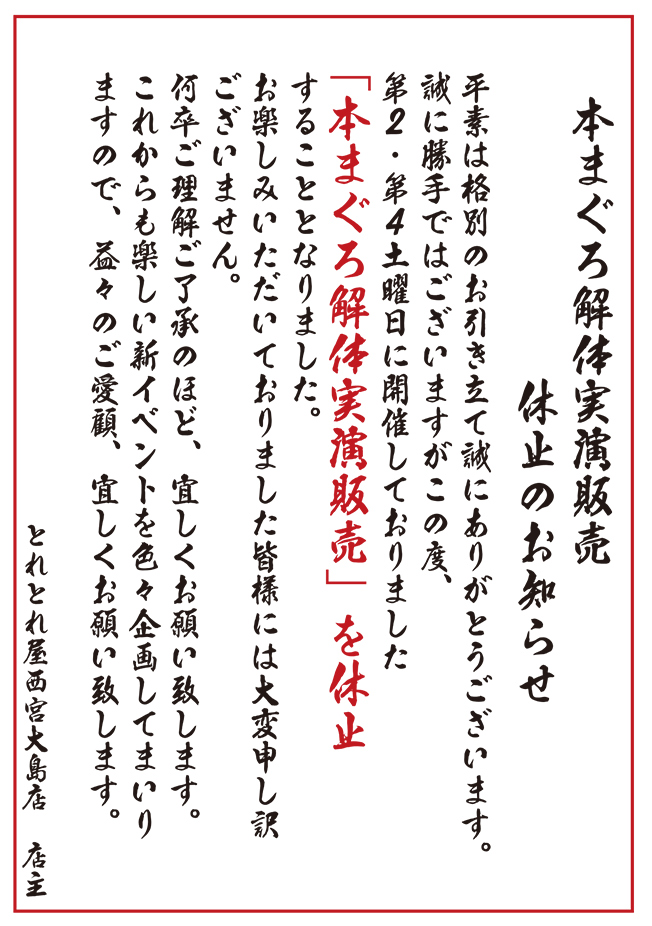 本まぐろ解体実演販売
休止のお知らせ
平素は格別のお引き立て誠にありがとうございます。
誠に勝手ではございますがこの度、
第2・第4土曜日に開催しておりました
「本まぐろ解体実演販売」を休止
することとなりました。
お楽しみいただいておりました皆様には大変申し訳
ございません。
何卒ご理解ご了承のほど、宜しくお願い致します。
これからも楽しい新イベントを色々企画してまいり
ますので、益々のご愛顧、宜しくお願い致します。
とれとれ屋西宮大島店　店主